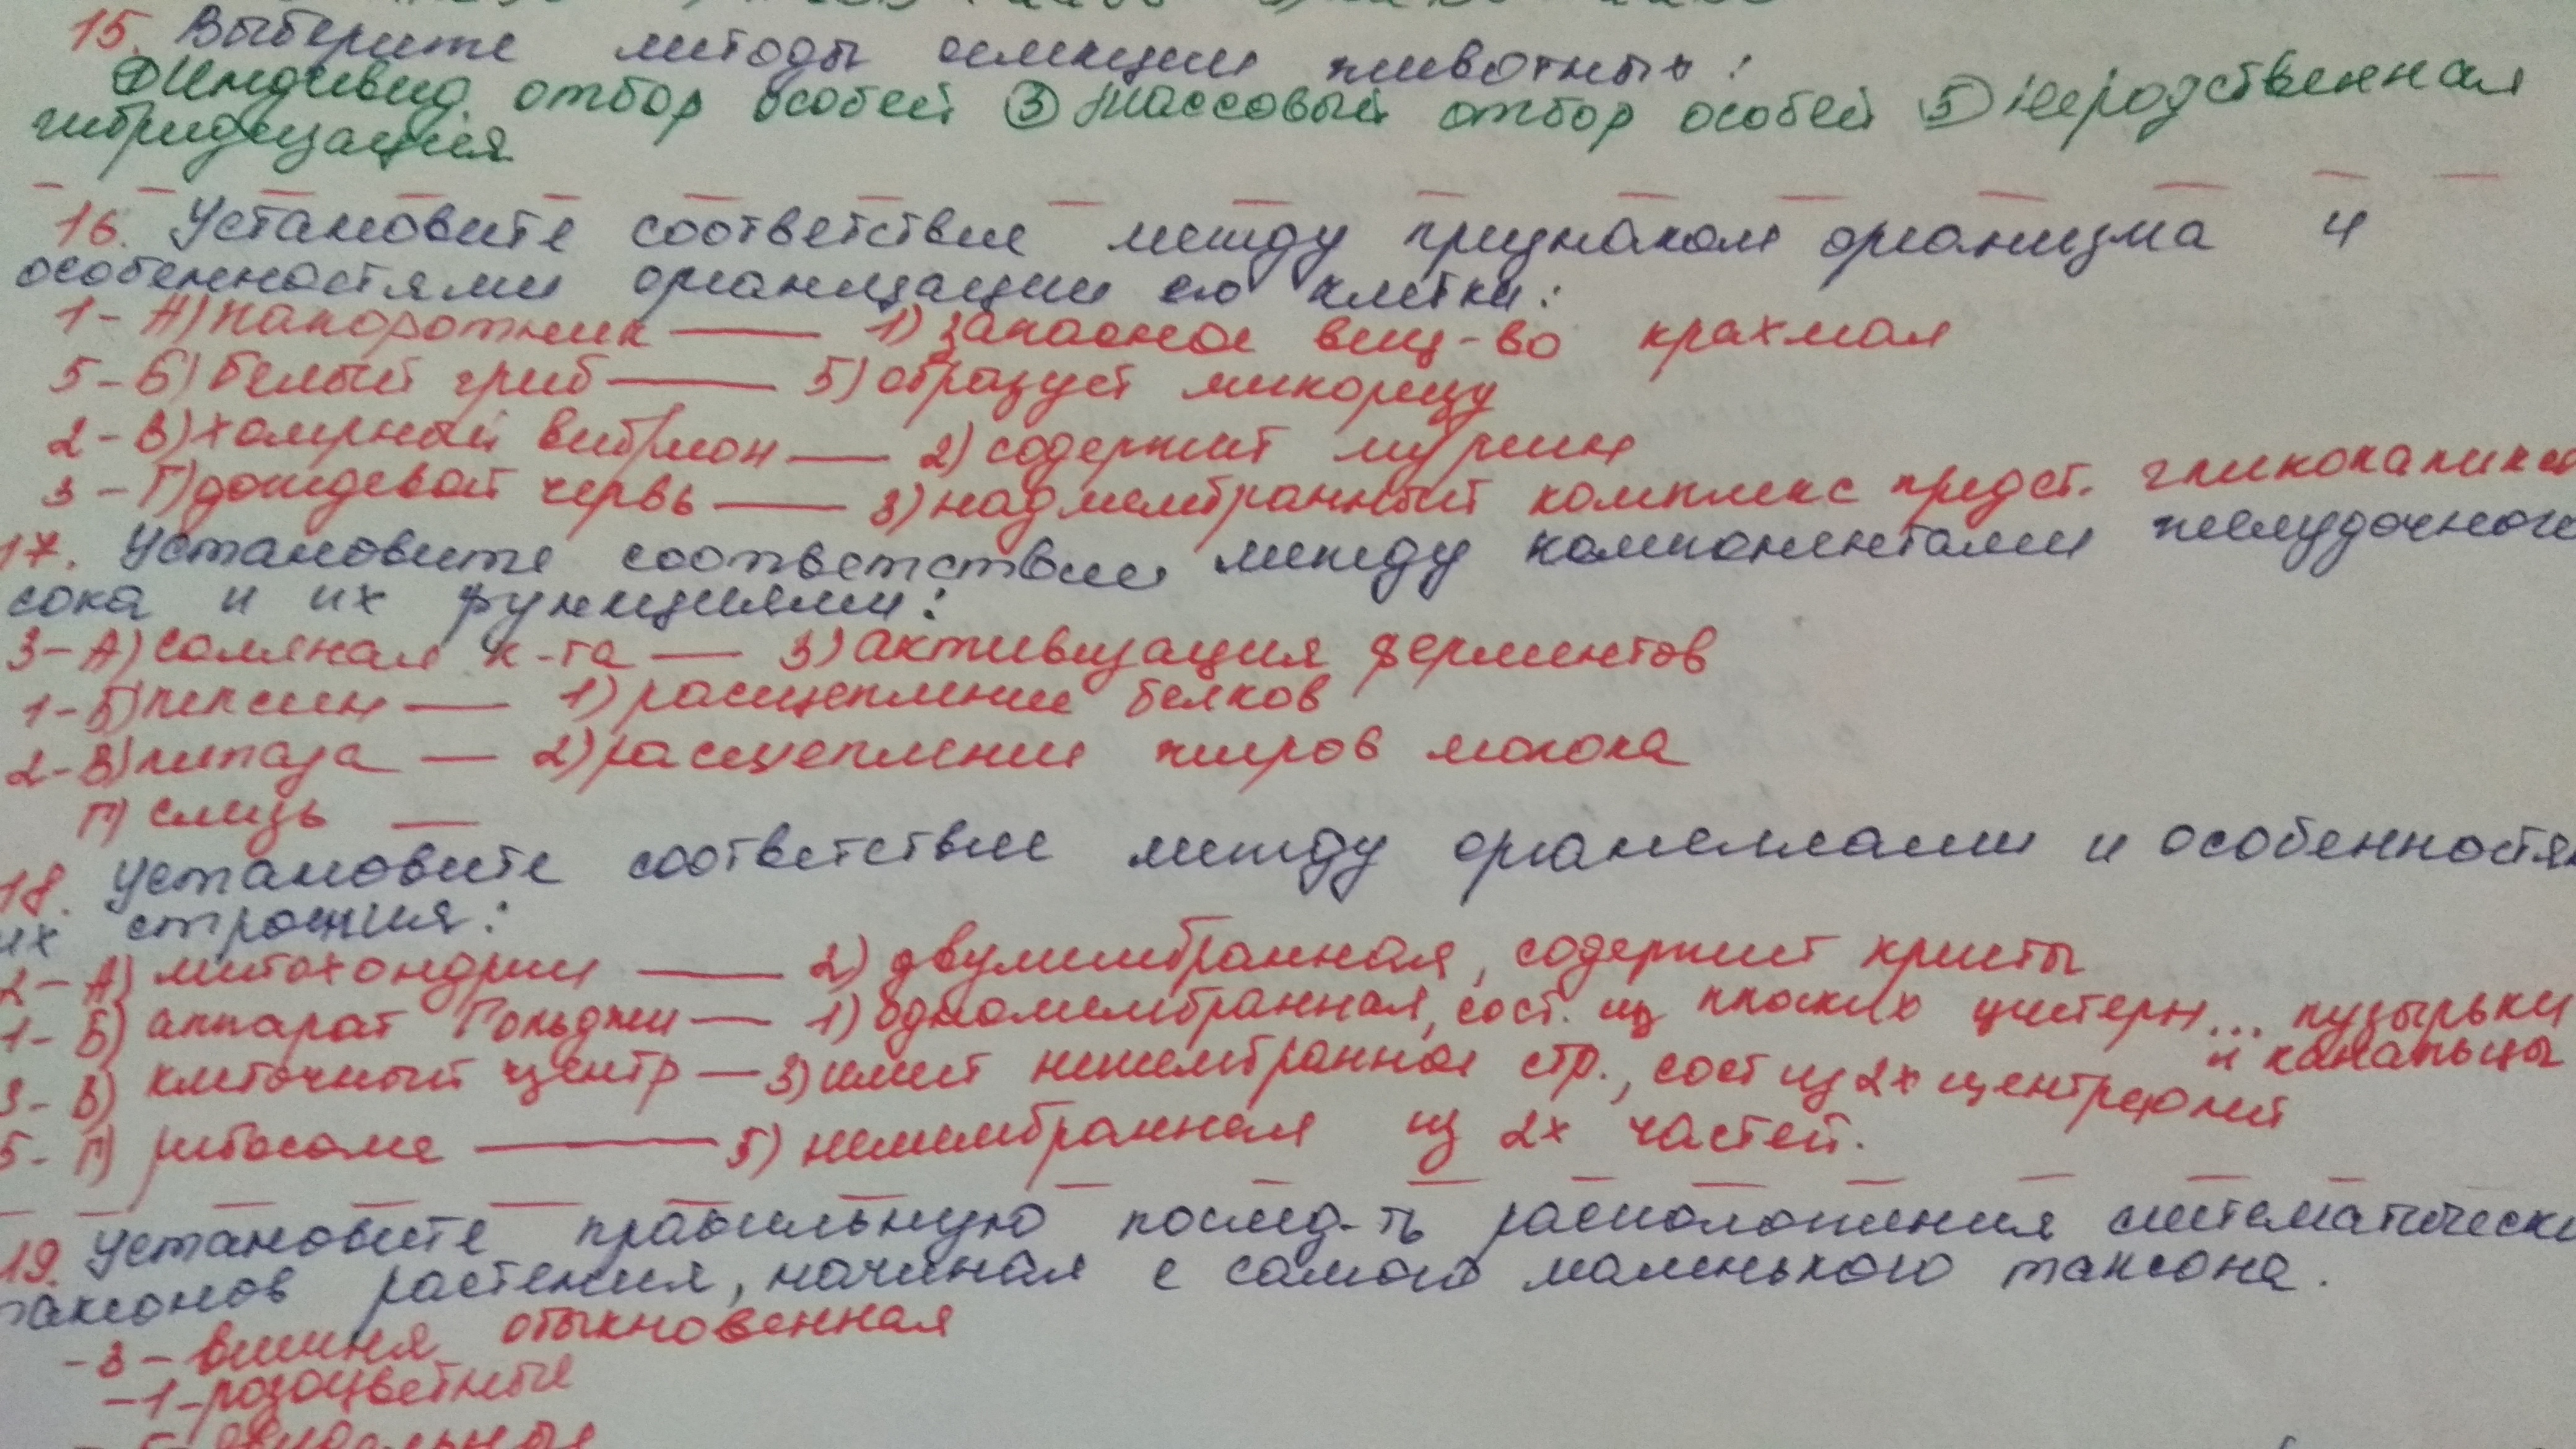 15. Выберите методы селекции животных:
① Индивид. отбор особей ③ Массовый отбор особей ⑤ Неродственная
гибридизация
16. Установите соответствие между признаком организма и
особенностями организации его клетки:
1- А) папоротник — 1) запасное вещ-во крахмал
5- Б) белый гриб — 5) образует микоризу
2- В) холерный вибрион — 2) содержит муреин
3- Г) дождевой червь — 3) надмембранный комплекс предст. гликокаликс
17. Установите соответствие между компонентами желудочного
сока и их функциями:
3- А) соляная к-та — 3) активизация ферментов
1- Б) пепсин — 1) расщепление белков
2- В) липаза — 2) расщепление жиров молока
Г) слизь —
18. Установите соответствие между органеллами и особенностям
их строения:
2- А) митохондрии — 2) двумембранная, содержит кристы
1- Б) аппарат Гольджи — 1) одномембранная, сост. из плоских цистерн... пузырьки
и канальцы
3- В) клеточный центр — 3) имеет немембранное стр., сост из 2х центриолей
5- Г) рибосома — 5) немембранная из 2х частей.
19. Установите правильную послед-ть расположения систематически
таксонов растения, начиная с самого маленького таксона.
-3- вишня обыкновенная
-1- розоцветные